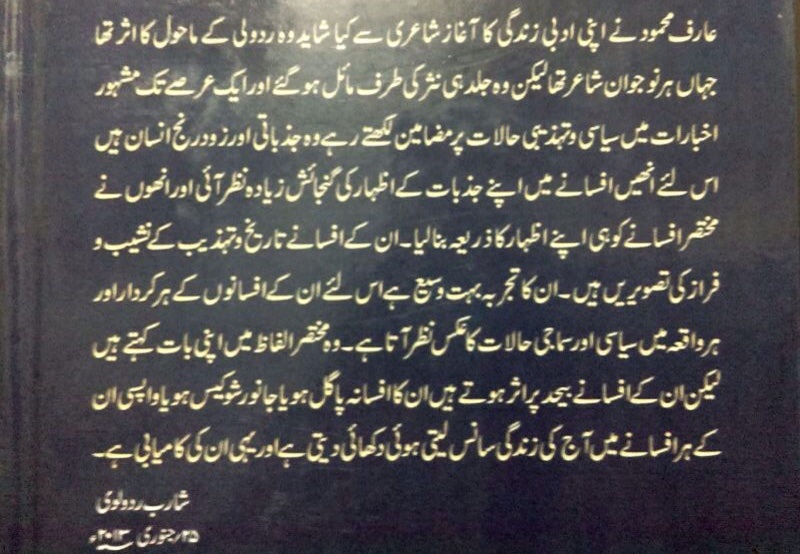 عارف محمود نے اپنی ادبی زندگی کا آغاز شاعری سے کیا شاید وہ ردولی کے ماحول کا اثر تھا
جہاں ہر نوجوان شاعر تھا لیکن وہ جلد ہی نثر کی طرف مائل ہو گئے اور ایک عرصے تک مشہور
اخبارات میں سیاسی و تہذیبی حالات پر مضامین لکھتے رہے وہ جذباتی اور زود رنج انسان ہیں
اس لئے انھیں افسانے میں اپنے جذبات کے اظہار کی گنجائش زیادہ نظر آئی اور انھوں نے
مختصر افسانے کو ہی اپنے اظہار کا ذریعہ بنالیا۔ ان کے افسانے تاریخ و تہذیب کے نشیب و
فراز کی تصویریں ہیں۔ ان کا تجربہ بہت وسیع ہے اس لئے ان کے افسانوں کے ہر کردار اور
ہر واقعہ میں سیاسی اور سماجی حالات کا عکس نظر آتا ہے۔ وہ مختصر الفاظ میں اپنی بات کہتے ہیں
لیکن ان کے افسانے بیحد پر اثر ہوتے ہیں ان کا افسانہ پاگل ہو یا جانور شوکیس ہو یا واپسی ان
کے ہر افسانے میں آج کی زندگی سانس لیتی ہوئی دکھائی دیتی ہے اور یہی ان کی کامیابی ہے۔
شارب ردولوی
۲۵؍جنوری ۲۰۱۳ء